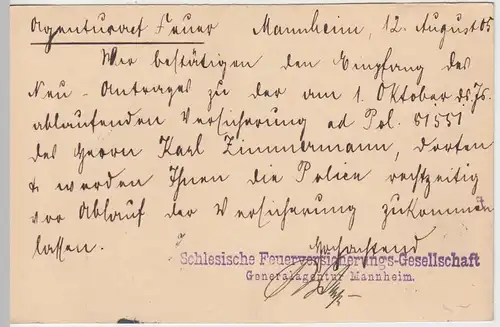 Agenturact Feuer Mannheim, 12. August 05
Wir bestätigen den Empfang des
Neu-Antrages zu der am 1. Oktober ds. Js.
ablaufenden Versicherung ad Pol. 61551
des Herrn Karl Zimmermann, dorten
& werden Ihnen die Police rechtzeitig
vor Ablauf der Versicherung zukommen
lassen.
Hochachtend
Schlesische Feuerversicherungs-Gesellschaft
Generalagentur Mannheim.